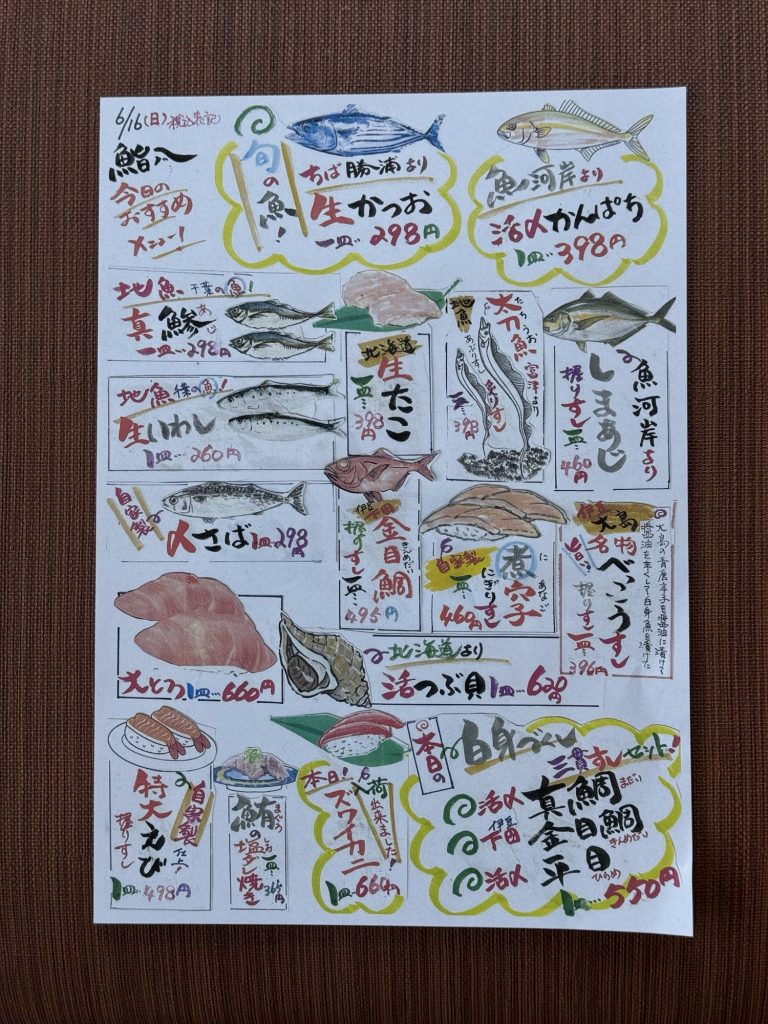 6/16(日)税込表記
鮨八
今日の
おすすめ
メニュー!
旬の魚!
ちば勝浦より
生かつお
一皿…298円
魚河岸より
活〆かんぱち
1皿…398円
地魚 千葉の魚!
真鯵
あじ
一皿…298円
北海道
生たこ
一皿…398円
地魚
太刀魚
たちうお
富津より
あぶりすし
炙りすし
一皿…398円
魚河岸より
しまあじ
握りすし一皿…460円
地魚
の魚!
生いわし
1皿…260円
自家製
〆さば1皿…298円
伊豆下田
金目鯛
きんめだい
握りすし一皿…495円
自家製
煮穴子
にあなご
にぎりすし
一皿…460円
伊豆大島
名物
べっこうすし
握りすし一皿…396円
大島の青唐辛子を醤油に漬けて
醤油を辛くして白身魚を漬けた
大とろ1皿…660円
北海道より
活つぶ貝1皿…620円
自家製
特大えび
握りすし
1皿…498円
鮪の塩だし焼き
まぐろ
本日!
入荷出来ました!
ズワイカニ
1皿…660円
本日の
白身づくし
三貫すしセット!
活〆 真鯛
まだい
伊豆下田 金目鯛
きんめだい
活〆 平目
ひらめ
1皿…550円